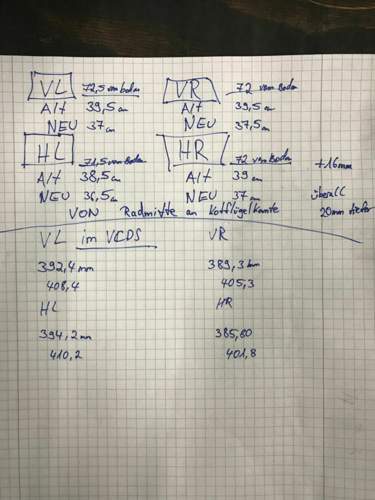 VL 72,5 vom Boden VR 72 vom Boden
Alt 39,5 cm Alt 39,5 cm
NEU 37 cm NEU 37,5 cm
HL 71,5 vom Boden HR 72 vom Boden +16mm
Alt 38,5 cm Alt 39 cm
NEU 36,5 cm NEU 37 cm überall
VON Radmitte an Kotflügelkante 20mm tiefer
VL im VCDS VR
392,4 mm 389,3 mm
408,4 405,3
HL HR
394,2 mm 385,80
410,2 401,8